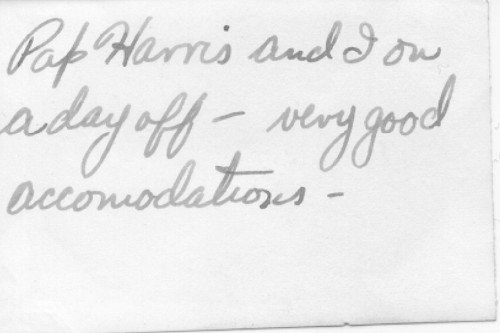 Pap Harris and I on
a day off - very good
accomodations -